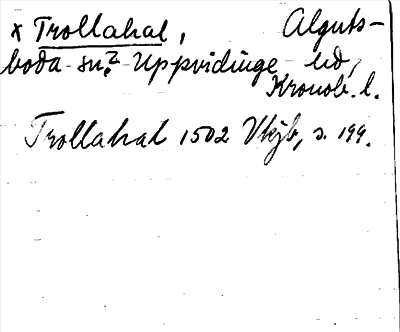 x Trollahal, Alguts-
boda sn.? Uppvidinge hd,
Kronob. l.
Trollahal 1502 Vkjb, s. 199.